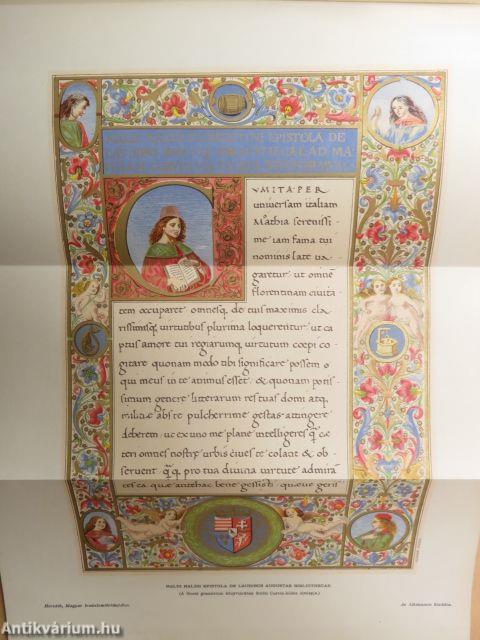 EPISTOLA DE
AD MA
VMITA PER
universam italiam
Mathia serenissi-
me iam fama tui
nominis late va-
garetur ut omnē
florentinam civita-
tem occuparet omnesq; de tuis maximis cla-
rissimisq; virtutibus plurima loquerentur ut ca
ptus amore tui regiarumq; virtutum coepi co
gitare quonam modo tibi significare possem o
qui meus in te animus esset & quonam potis-
simum genere litterarum res tuas domi atq;
abs te pulcherrime gestas attingere
deberem ut ex uno me plane intelligeres q̃ ce
teri omnes nostrę urbis cives te colant & ob
servent q̃q; pro tua divina virtute admirā
tes ea quae antehac bene gessisti quaeve geris
NALDI NALDII EPISTOLA DE LAUDIBUS AUGUSTAE BIBLIOTHECAE.
(A thorni gimnázium könyvtárában őrzött Corvin-kódex címlapja.)
Az Athenaeum kiadása.
Antikvárium.hu